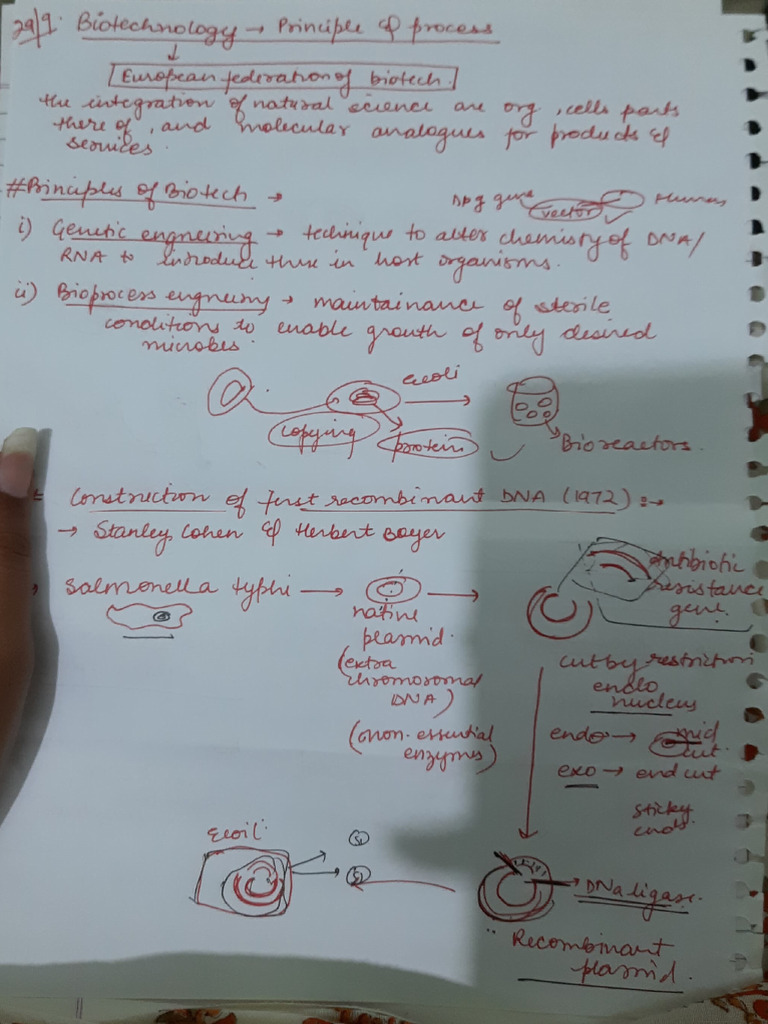 29/9. Biotechnology → Principle & process
European federation of biotech.
the integration of natural science are org, cells parts
there of, and molecular analogues for products &
services.
#Principles of Biotech →
gene vector Human
i) Genetic engneering → technique to alter chemistry of DNA/
RNA to introduce these in host organisms.
ii) Bioprocess engneering → maintainance of sterile
conditions to enable growth of only desired
microbes.
Ecoli
copying protein
Bioreactors.
Construction of first recombinant DNA (1972) :→
→ Stanley Cohen & Herbert Boyer
Salmonella typhi → native
plasmid.
(extra
chromosomal
DNA)
(non-essential
enzymes)
Antibiotic
resistance
gene.
cut by restriction
endo
nucleus
endo → mid
cut.
exo → end cut
sticky
ends.
Ecoil.
DNA ligase.
Recombinant
plasmid.